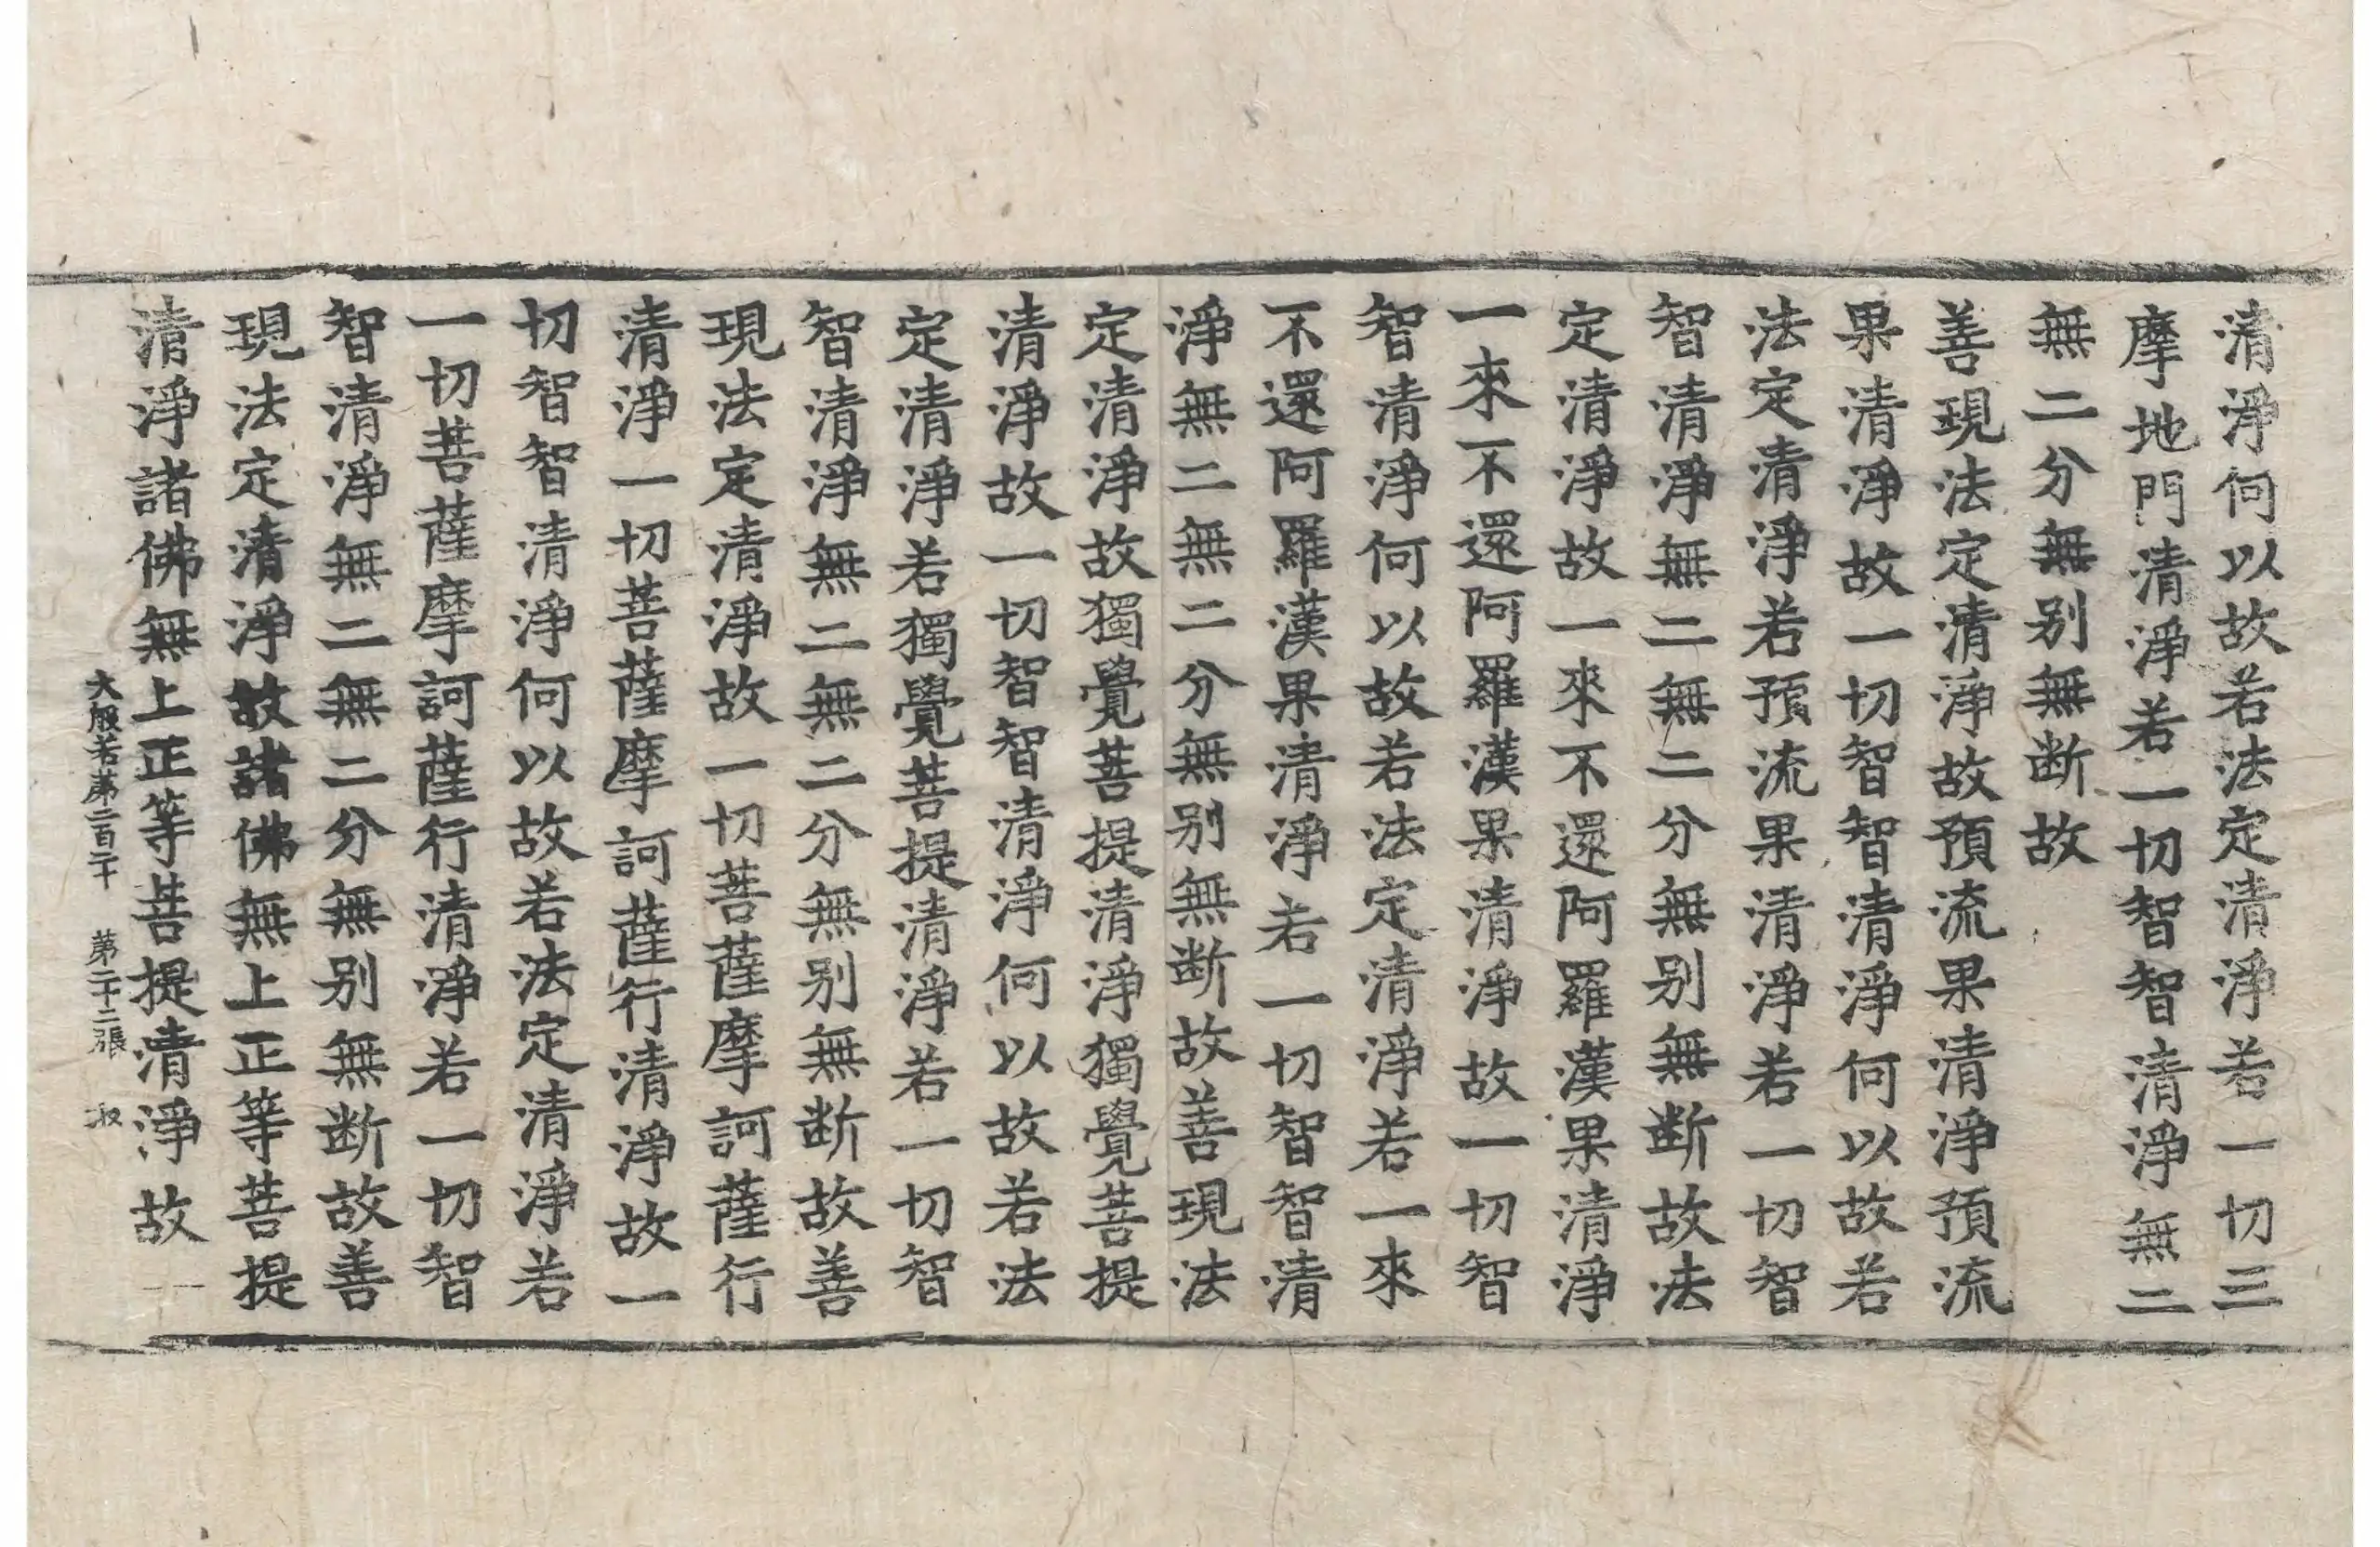 清淨何以故若法定清淨若一切三
摩地門清淨若一切智智清淨無二
無二分無别無断故
善現法定清淨故預流果清淨預流
果清淨故一切智智清淨何以故若
法定清淨若預流果清淨若一切智
智清淨無二無二分無别無断故法
定清淨故一來不還阿羅漢果清淨
一來不還阿羅漢果清淨故一切智
智清淨何以故若法定清淨若一來
不還阿羅漢果清淨若一切智智清
淨無二無二分無别無断故善現法
定清淨故獨覺菩提清淨獨覺菩提
清淨故一切智智清淨何以故若法
定清淨若獨覺菩提清淨若一切智
智清淨無二無二分無别無断故善
現法定清淨故一切菩薩摩訶薩行
清淨一切菩薩摩訶薩行清淨故一
切智智清淨何以故若法定清淨若
一切菩薩摩訶薩行清淨若一切智
智清淨無二無二分無别無断故善
現法定清淨故諸佛無上正等菩提
清淨諸佛無上正等菩提清淨故一
大般若第二百二十 第二十二張